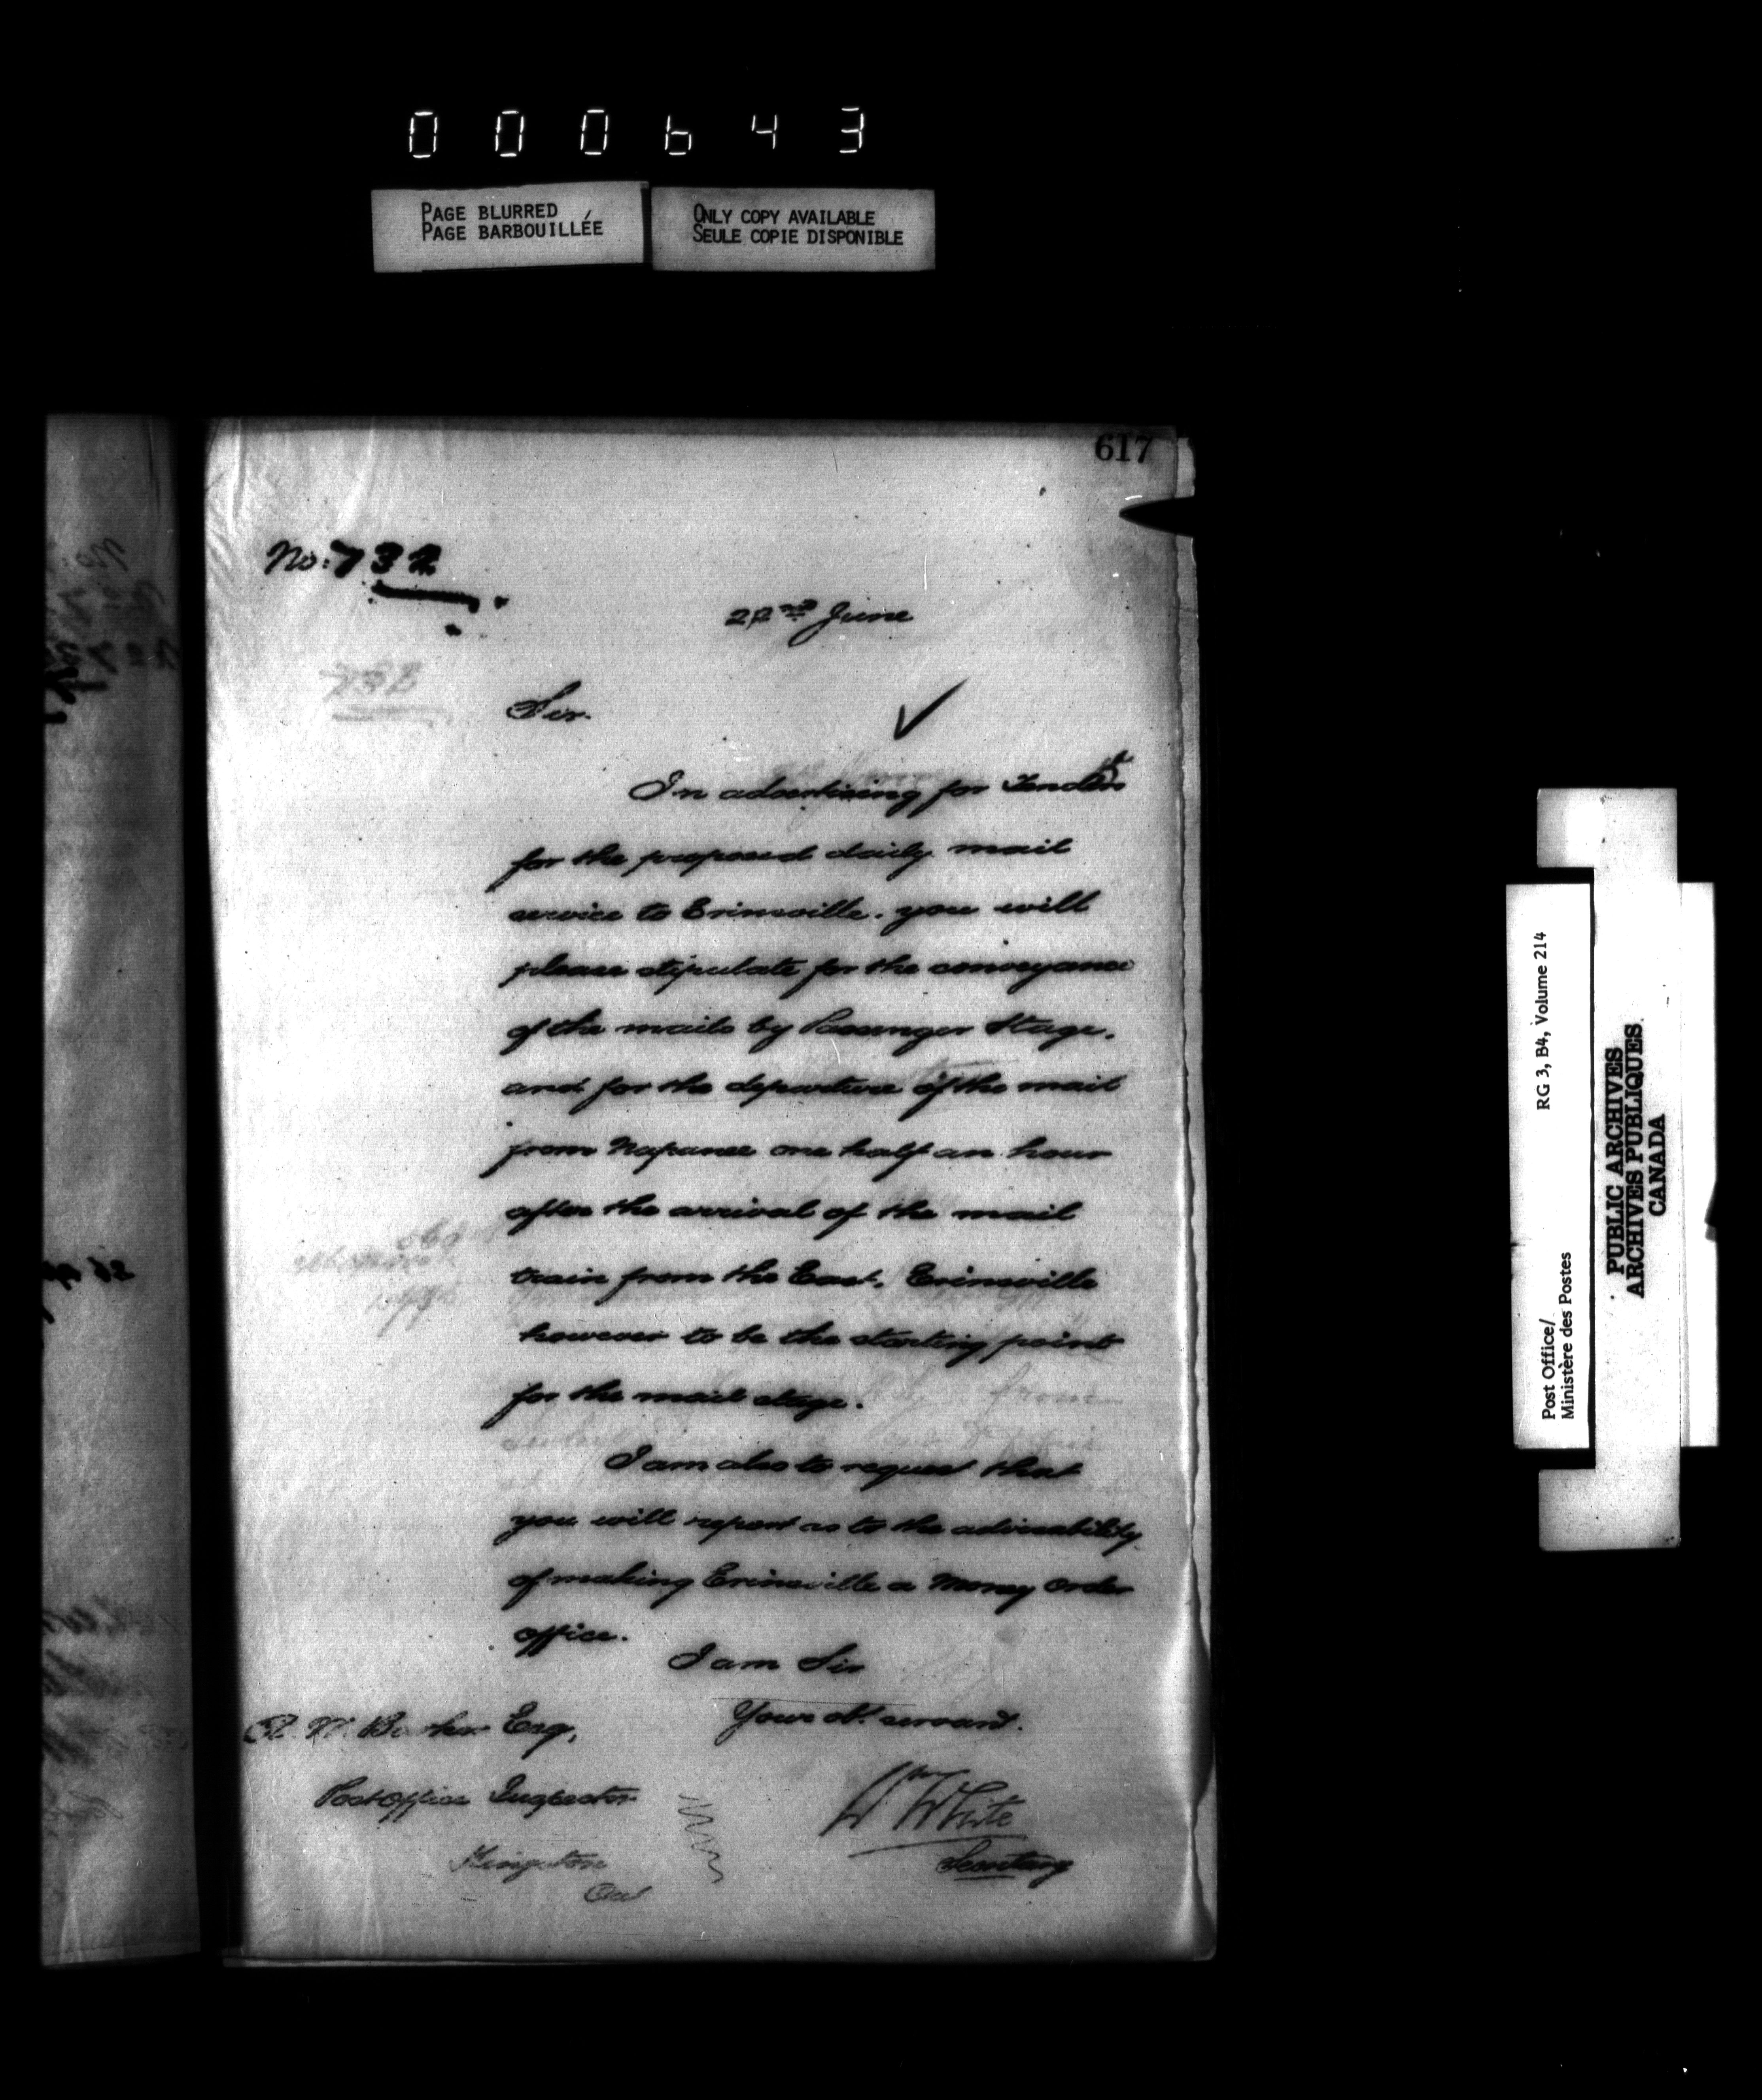 000643
PAGE BLURRED
PAGE BARBOUILLÉE
ONLY COPY AVAILABLE
SEULE COPIE DISPONIBLE
617
No. 732
22nd June
732
Sir.
In advertising for Tenders
for the proposed daily mail
service to Erinsville. you will
please stipulate for the conveyance
of the mails by Passenger Stage.
and for the departure of the mail
from Napanee one half an hour
after the arrival of the mail
train from the East. Erinsville
however to be the starting point
for the mail stage.
I am also to request that
you will report as to the adviseability
of making Erinsville a Money Order
office.
I am Sir
Your obt. servant.
R. W. Barker Esq,
Post Office Inspector
Kingston
Ont
Wm White
Secretary
Post Office/
Ministère des Postes
RG 3, B4, Volume 214
PUBLIC ARCHIVES
ARCHIVES PUBLIQUES
CANADA